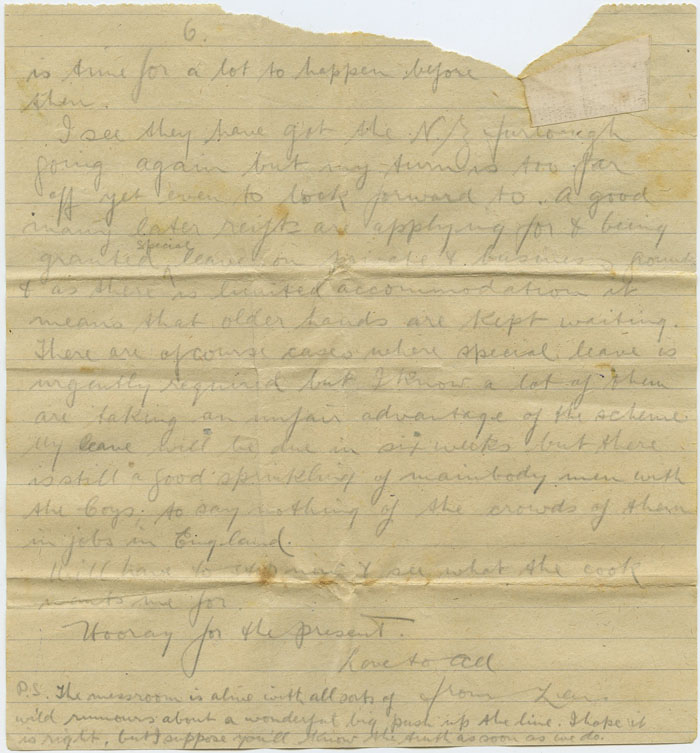 6.
is time for a lot to happen before
then.
I see they have got the N/Z furlough
going again but my turn is too far
off yet even to look forward to. A good
many later reigts are applying for & being
granted special leave on private & business grounds
& as there is limited accommodation it
means that older hands are kept waiting.
There are of course cases where special leave is
urgently required but I know a lot of them
are taking an unfair advantage of the scheme
My leave will be due in six weeks but there
is still a good sprinkling of mainbody men with
the boys, to say nothing of the crowds of them
in jobs in England.
Will have to now & see what the cook
wants me for.
Hooray for the present.
Love to all
from
P.S. The messroom is alive with all sorts of
wild rumours about a wonderful big push up the line. I hope it
is right, but I suppose you'll know the truth as soon as we do.